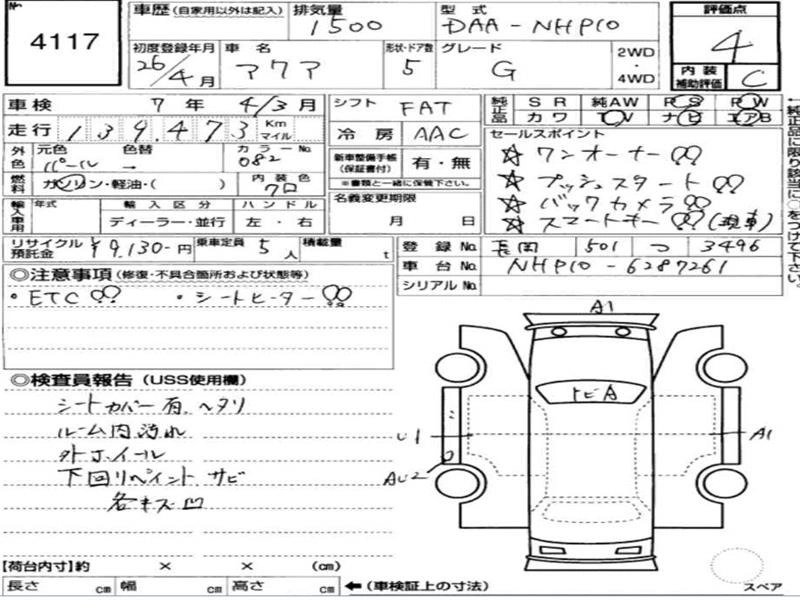 No. 4117
車歴 (自家用以外は記入) 排気量 1500 型式 DAA-NHP10 評価点 4
初度登録年月 26/4月 車名 アクア 形状・ドア数 5 グレード G 2WD・4WD 内装補助評価 C
車検 7年 4/3月 シフト FAT 純正品 SR 純AW PS PW
走行 139,473 Km マイル 冷房 AAC カワ TV ナビ エアB
外色 元色 パール 色替 → カラーNo. 082 新車整備手帳(保証書付) 有・無 ※書類と一緒に保管下さい。
燃料 ガソリン・軽油・( ) 内装色 クロ
セールスポイント
☆ ワンオーナー
☆ プッシュスタート
☆ バックカメラ
☆ スマートキー (現車)
輸入車用 年式 輸入区分 ディーラー・並行 ハンドル 左・右 名義変更期限 月 日
リサイクル預託金 ¥9,130-円 乗車定員 5人 積載量 t 登録No. 長岡 501 つ 3496
車台No. NHP10-6287261
シリアルNo.
←純正品に限り該当に○をつけて下さい。
◎注意事項 (修復・不具合箇所および状態等)
・ETC ・シートヒーター
◎検査員報告 (USS使用欄)
シートカバー有 ヘタリ
ルーム内汚れ
外ホイール
下回リペイント サビ
各キズ凹
A1
トビA
U1
A1
AU2
【荷台内寸】約 × × (cm)
長さ cm 幅 cm 高さ cm ←(車検証上の寸法)
スペア